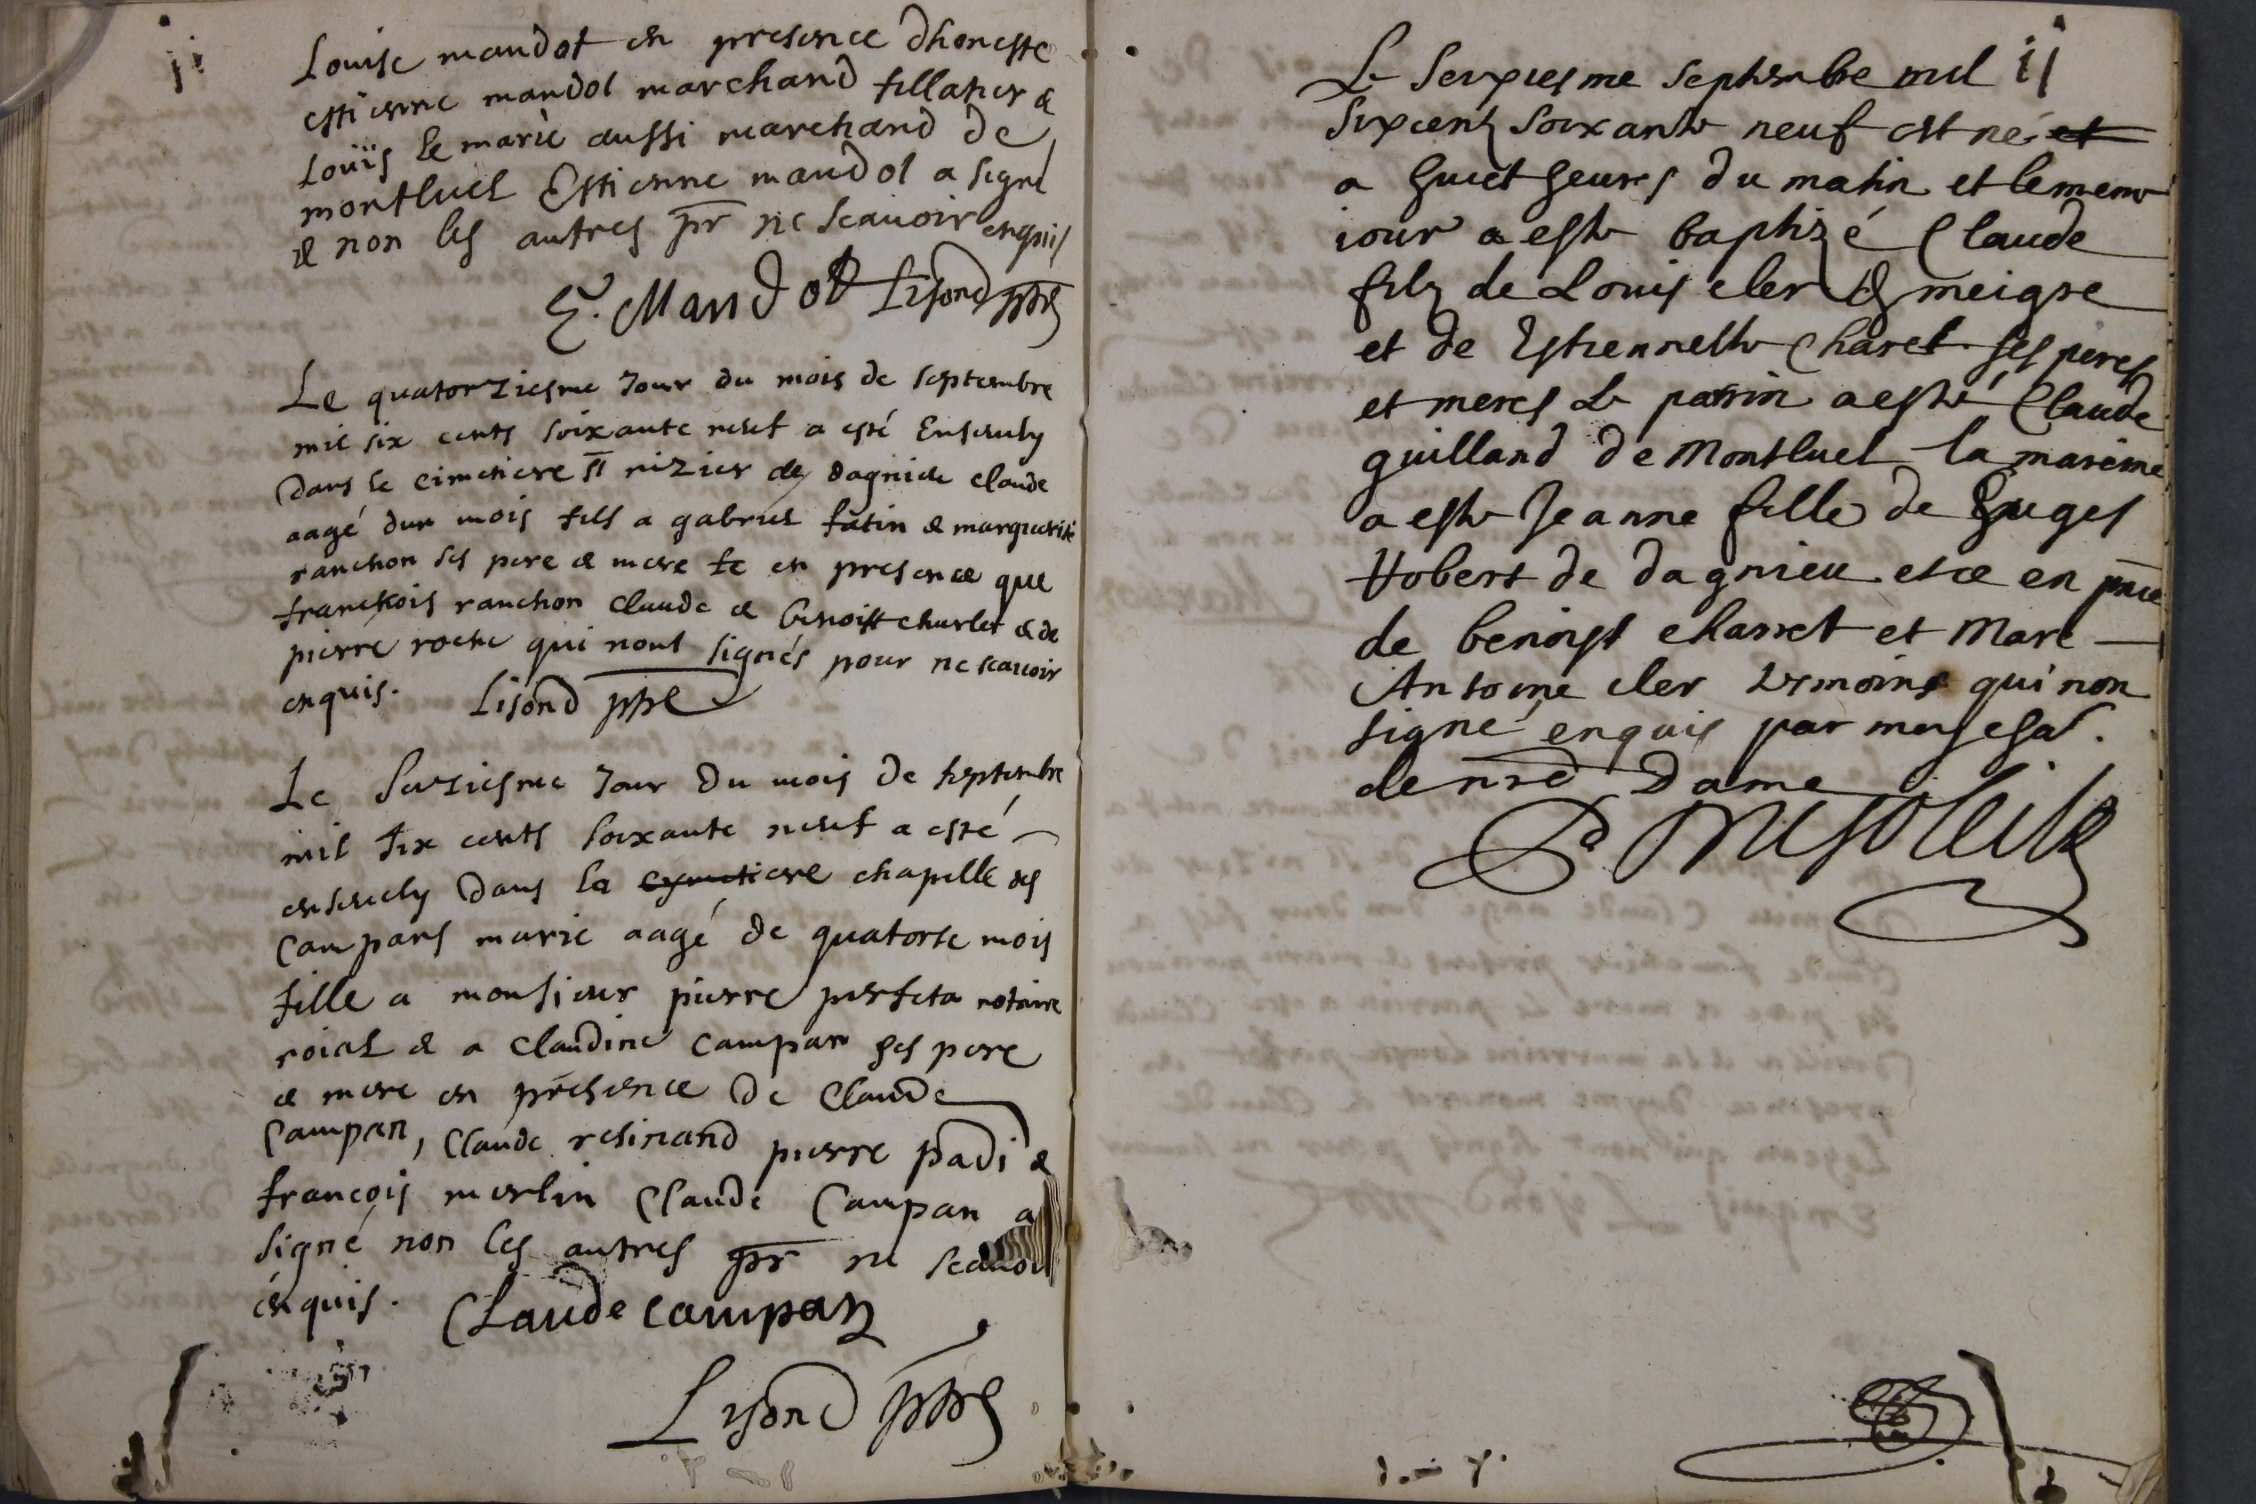 Louise mandot en presence dhoneste
estienne mandot marchand fillatier &
Louïs le marie aussi marchand de
montluel Estienne mandot a signé
& non les autres pr ne scavoir enquis
E. Mandot Lisond pbre
Le quatorziesme Jour du mois de septembre
mil six cents soixante neuf a esté Ensevely
Dans le cimetiere St nizier de dagnieu claude
aagé dun mois fils a gabriel fatin & marguerite
ranchon ses pere & mere & en presence que
franchois ranchon claude & benoist charlet & de
pierre roche qui nont signés pour ne scavoir
enquis. Lisond pbre
Le Seiziesme Jour Du mois De septembre
mil six cents soixante neuf a esté
ensevely Dans la cymetiere chapelle des
Campans marie aagé de quatorse mois
fille a monsieur pierre perfeta notaire
roial & a claudine campan ses pere
& mere en presence De Claude
Campan, Claude resinand pierre padi &
francois merlin Claude Campan a
signé non les autres pr ne scavoi
enquis. Claude campan
Lisond pbre
ii
Le Seixiesme Septembre mil
Sixcentz Soixante neuf est né et
a huict heures du matin et le meme
iour a este baptizé Claude
filz de Louis cler & meigre
et de Estiennette Charet ses peres
et meres Le parrin a esté Claude
guilland de Montluel la mareine
a este Jeanne fille de huges
Hobert de dagnieu et ce en pnce
de benoist charret et Marc
Antoine cler temoins qui non
signé enquis par moy
de nre Dame